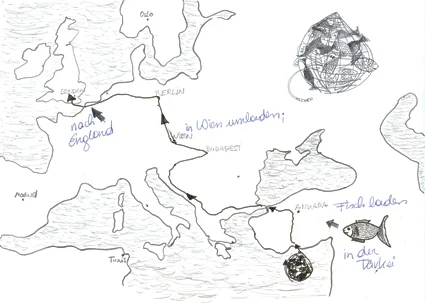 Oslo
LONDON
BERLIN
nach
England
in Wien umladen;
WIEN
BUDAPEST
Madrid
ANKARA
Fisch laden
in der
Türkei
Tunis